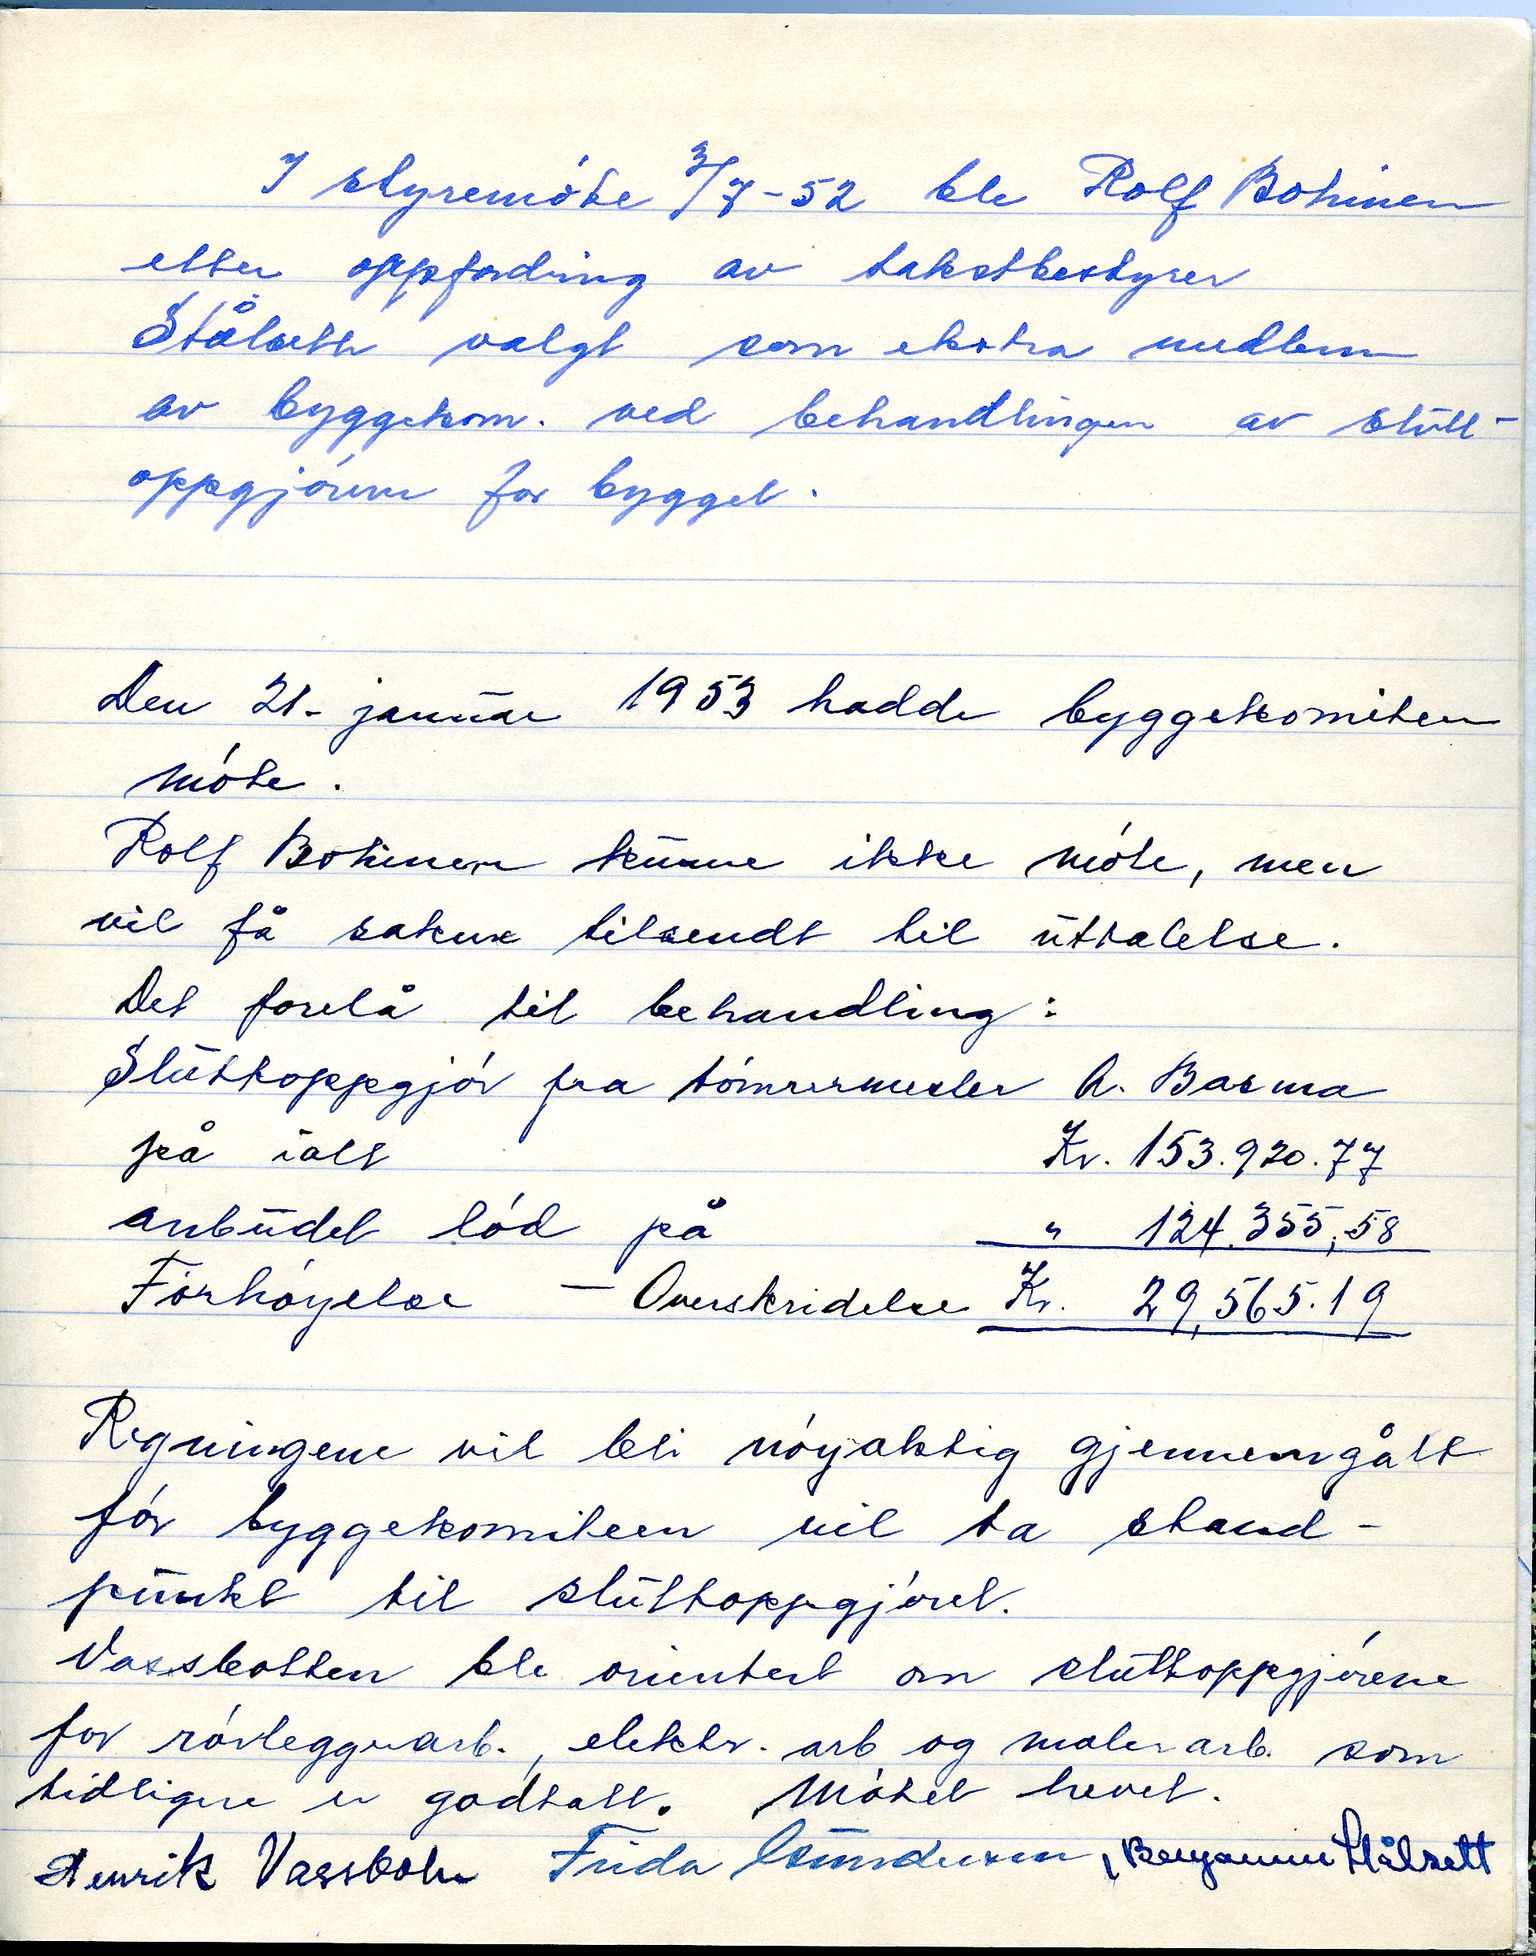 I styremöte 3/7-52 ble Rolf Bohinen
etter oppfordring av takstbestyrer
Stålseth valgt som ekstra medlem
av byggekom. ved behandlingen av slutt-
oppgjörene for bygget.
Den 21. januar 1953 hadde byggekomiteen
möte.
Rolf Bohinen kunne ikke möte, men
vil få sakene tilsendt til uttalelse.
Det forelå til behandling:
Sluttoppgjör fra tömrermester A. Basma
på ialt Kr. 153.920.77
anbudet löd på " 124.355,58
Forhöyelse — Overskridelse Kr. 29,565.19
Regningene vil bli nöyaktig gjennemgått
för byggekomiteen vil ta stand-
punkt til sluttoppgjöret.
Vassbotten ble orientert om sluttoppgjörene
for rörleggerarb., elektr. arb og malerarb. som
tidligere er godtatt. Mötet hevet.
Henrik Vassbotn Frida Gundersen, Benjamin Stålsett